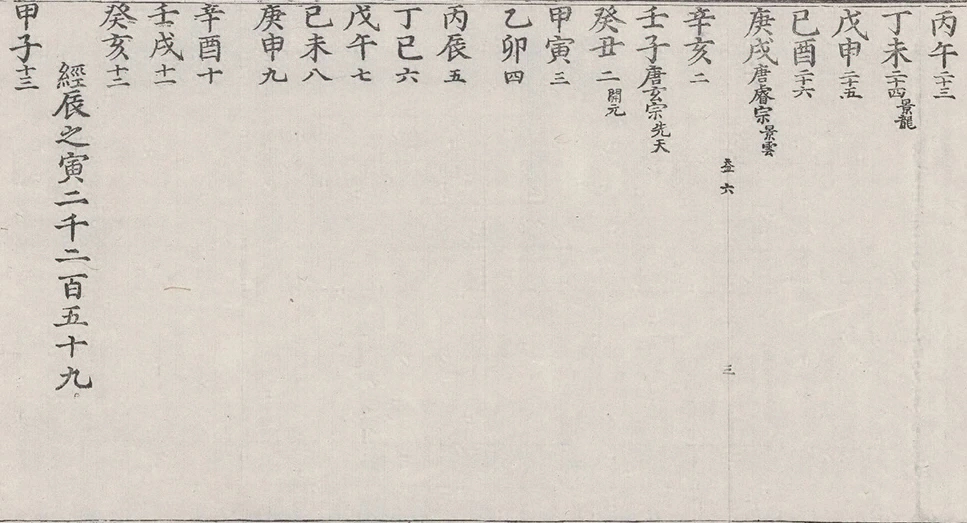 丙午二十三
丁未二十四景龍
戊申二十五
己酉二十六
庚戌唐睿宗景雲
六
三
辛亥二
壬子唐玄宗先天
癸丑二開元
甲寅三
乙卯四
丙辰五
丁巳六
戊午七
己未八
庚申九
辛酉十
壬戌十一
癸亥十二
經辰之寅二千二百五十九
甲子十三